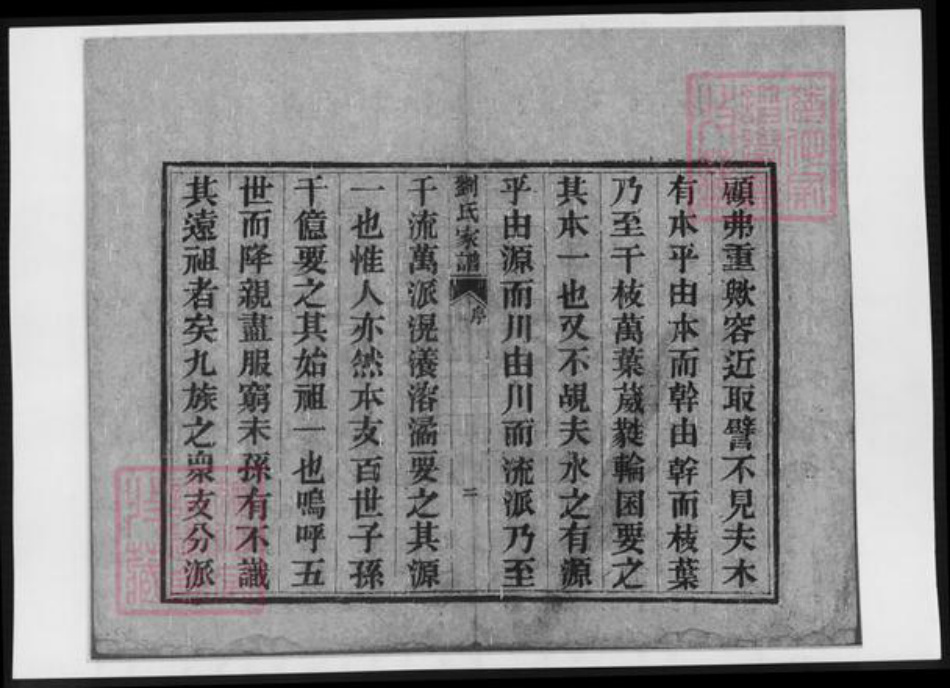 顧弗重歟容近取譬不見夫木
有本乎由本而幹由幹而枝葉
乃至千枝萬葉葳蕤輪囷要之
其本一也又不覩夫水之有源
乎由源而川由川而流派乃至
劉氏家譜
序
二
千流萬派滉瀁溶潏要之其源
一也惟人亦然本支百世子孫
千億要之其始祖一也嗚呼五
世而降親盡服窮未孫有不識
其遠祖者矣九族之衆支分派